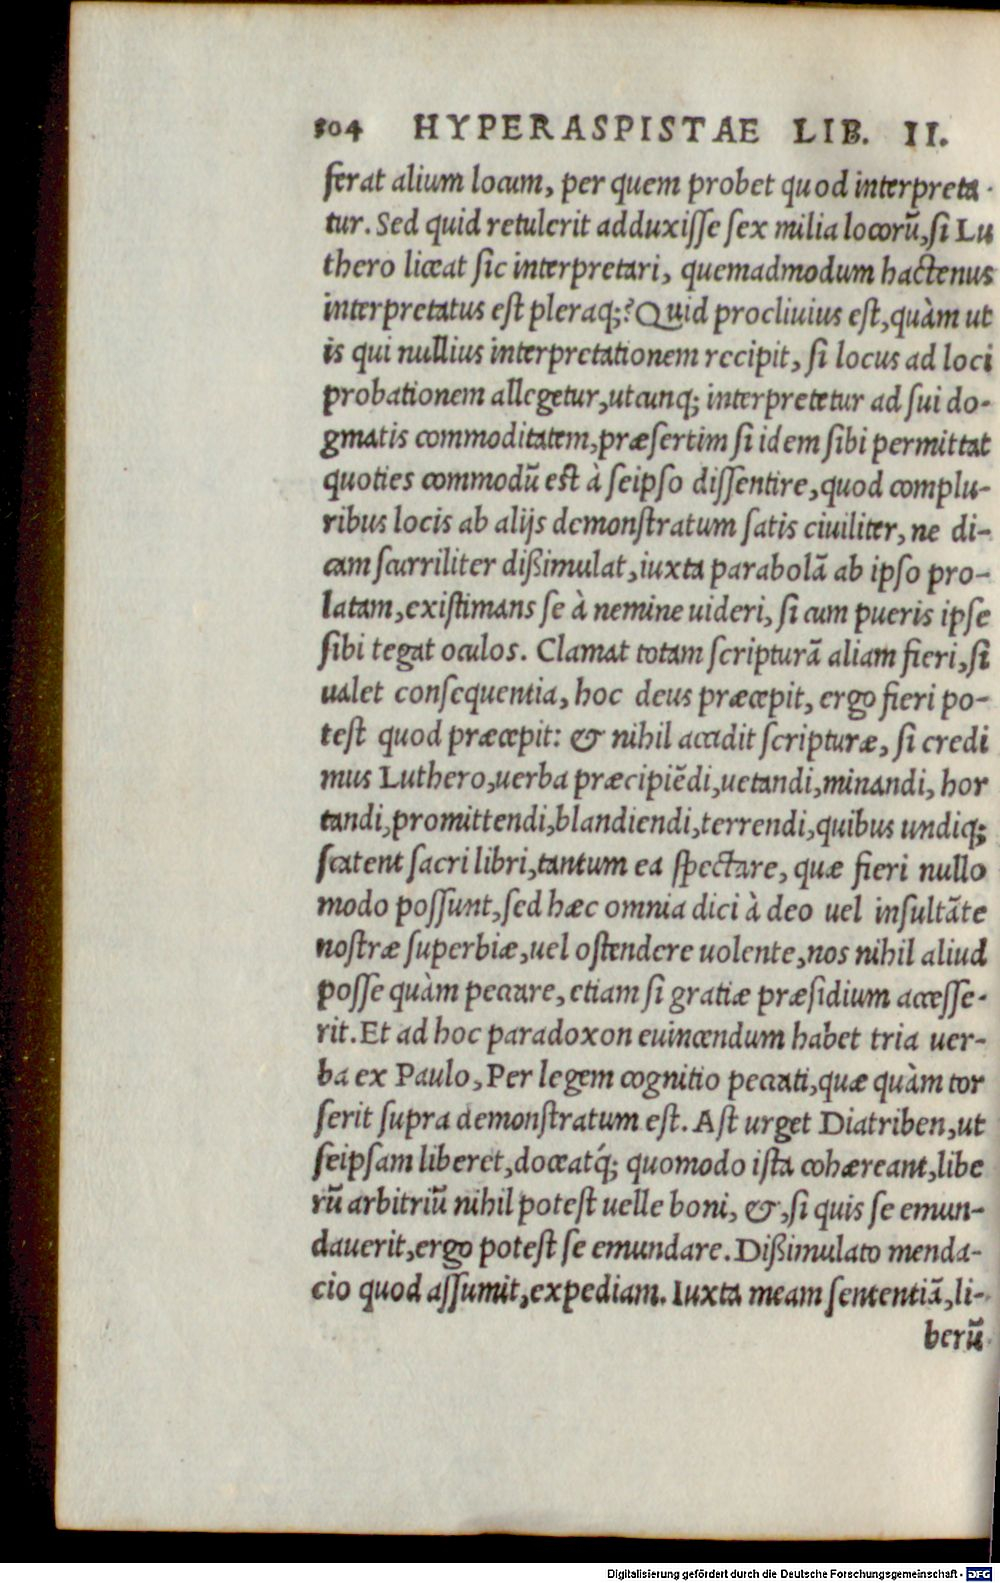 304 HYPERASPISTAE LIB. II.
ferat alium locum, per quem probet quod interpreta-
tur. Sed quid retulerit adduxisse sex milia locorũ, si Lu
thero liceat sic interpretari, quemadmodum hactenus
interpretatus est pleraq;? Quid procliuius est, quàm ut
is qui nullius interpretationem recipit, si locus ad loci
probationem allegetur, utcunq; interpretetur ad sui do-
gmatis commoditatem, præsertim si idem sibi permittat
quoties commodũ est à seipso dissentire, quod complu-
ribus locis ab alijs demonstratum satis ciuiliter, ne di-
cam scurriliter dißimulat, iuxta parabolã ab ipso pro-
latam, existimans se à nemine uideri, si cum pueris ipse
sibi tegat oculos. Clamat totam scripturã aliam fieri, si
ualet consequentia, hoc deus præcepit, ergo fieri po-
test quod præcepit: & nihil accidit scripturæ, si credi
mus Luthero, uerba præcipiẽdi, uetandi, minandi, hor
tandi, promittendi, blandiendi, terrendi, quibus undiq;
scatent sacri libri, tantum ea spectare, quæ fieri nullo
modo possunt, sed hæc omnia dici à deo uel insultãte
nostræ superbiæ, uel ostendere uolente, nos nihil aliud
posse quàm peccare, etiam si gratiæ præsidium accesse-
rit. Et ad hoc paradoxon euincendum habet tria uer-
ba ex Paulo, Per legem cognitio peccati, quæ quàm tor
serit supra demonstratum est. Ast urget Diatriben, ut
seipsam liberet, doceatq́; quomodo ista cohæreant, libe
rũ arbitriũ nihil potest uelle boni, &, si quis se emun-
dauerit, ergo potest se emundare. Dißimulato menda-
cio quod assumit, expediam. Iuxta meam sententiã, li-
berũ
Digitalisierung gefördert durch die Deutsche Forschungsgemeinschaft - DFG